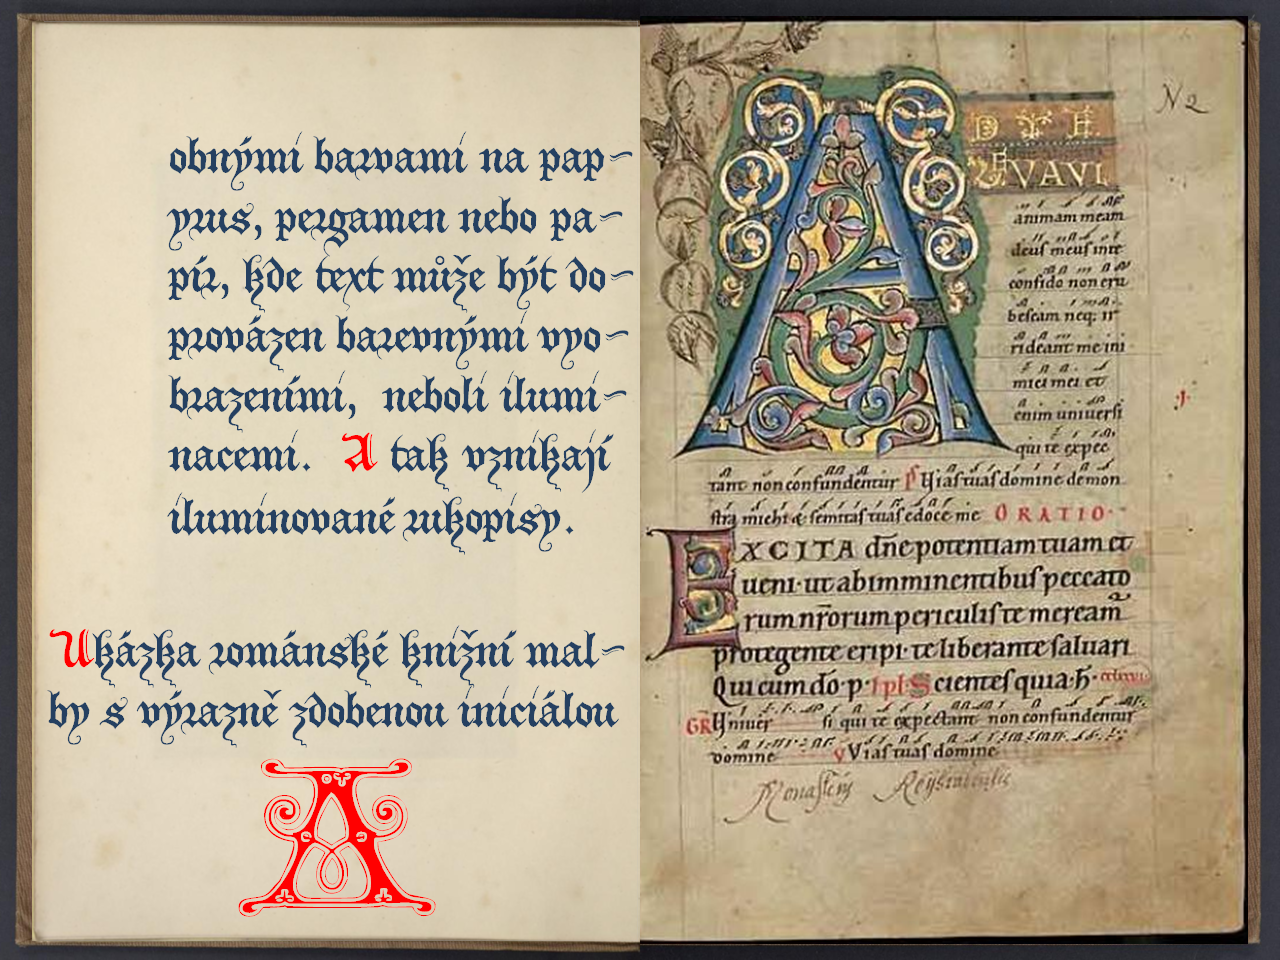 obnými barvami na pap-
yrus, pergamen nebo pa-
pír, kde text může být do-
provázen barevnými vyo-
brazeními, neboli ilumi-
nacemi. A tak vznikají
iluminované rukopisy.
Ukázka románské knižní mal-
by s výrazně zdobenou iniciálou
A
N 2
A D TE
LEVAVI
animam meam
deus meus inte
confido non eru
bescam neq; ir
rideant me ini
mici mei et
enim universi
qui te expec
tant non confundentur Vias tuas domine demon
stra michi & semitas tuas edoce me ORATIO
EXCITA dn̄e potentiam tuam et
ueni· ut ab imminentibus peccato
rum nr̄orum periculis te meream̄
protegente eripi· te liberante saluari
Qui cum dō· p· Scientes quia· h·
GR Vniuer si qui te expectant non confundentur
domine V Vias tuas domine